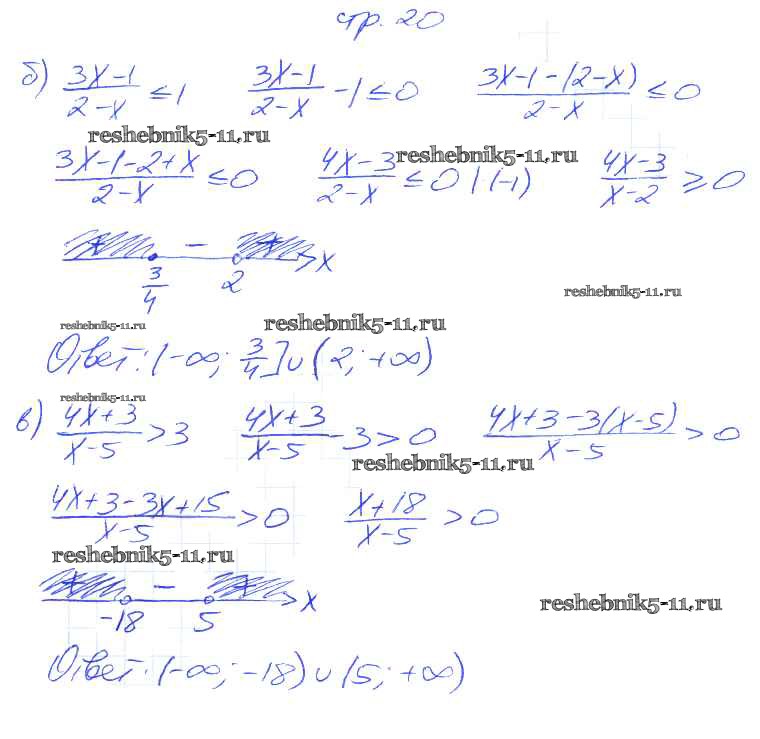 стр. 20
б) (3x-1)/(2-x) ≤ 1 (3x-1)/(2-x) - 1 ≤ 0 (3x-1-(2-x))/(2-x) ≤ 0
reshebnik5-11.ru
reshebnik5-11.ru
(3x-1-2+x)/(2-x) ≤ 0 (4x-3)/(2-x) ≤ 0 | (-1) (4x-3)/(x-2) ≥ 0
+ - + x
3/4 2
reshebnik5-11.ru
reshebnik5-11.ru reshebnik5-11.ru
Ответ: (-∞; 3/4] ∪ (2; +∞)
reshebnik5-11.ru
в) (4x+3)/(x-5) > 3 (4x+3)/(x-5) - 3 > 0 (4x+3-3(x-5))/(x-5) > 0
reshebnik5-11.ru
(4x+3-3x+15)/(x-5) > 0 (x+18)/(x-5) > 0
reshebnik5-11.ru
+ - + x
-18 5
reshebnik5-11.ru
Ответ: (-∞; -18) ∪ (5; +∞)